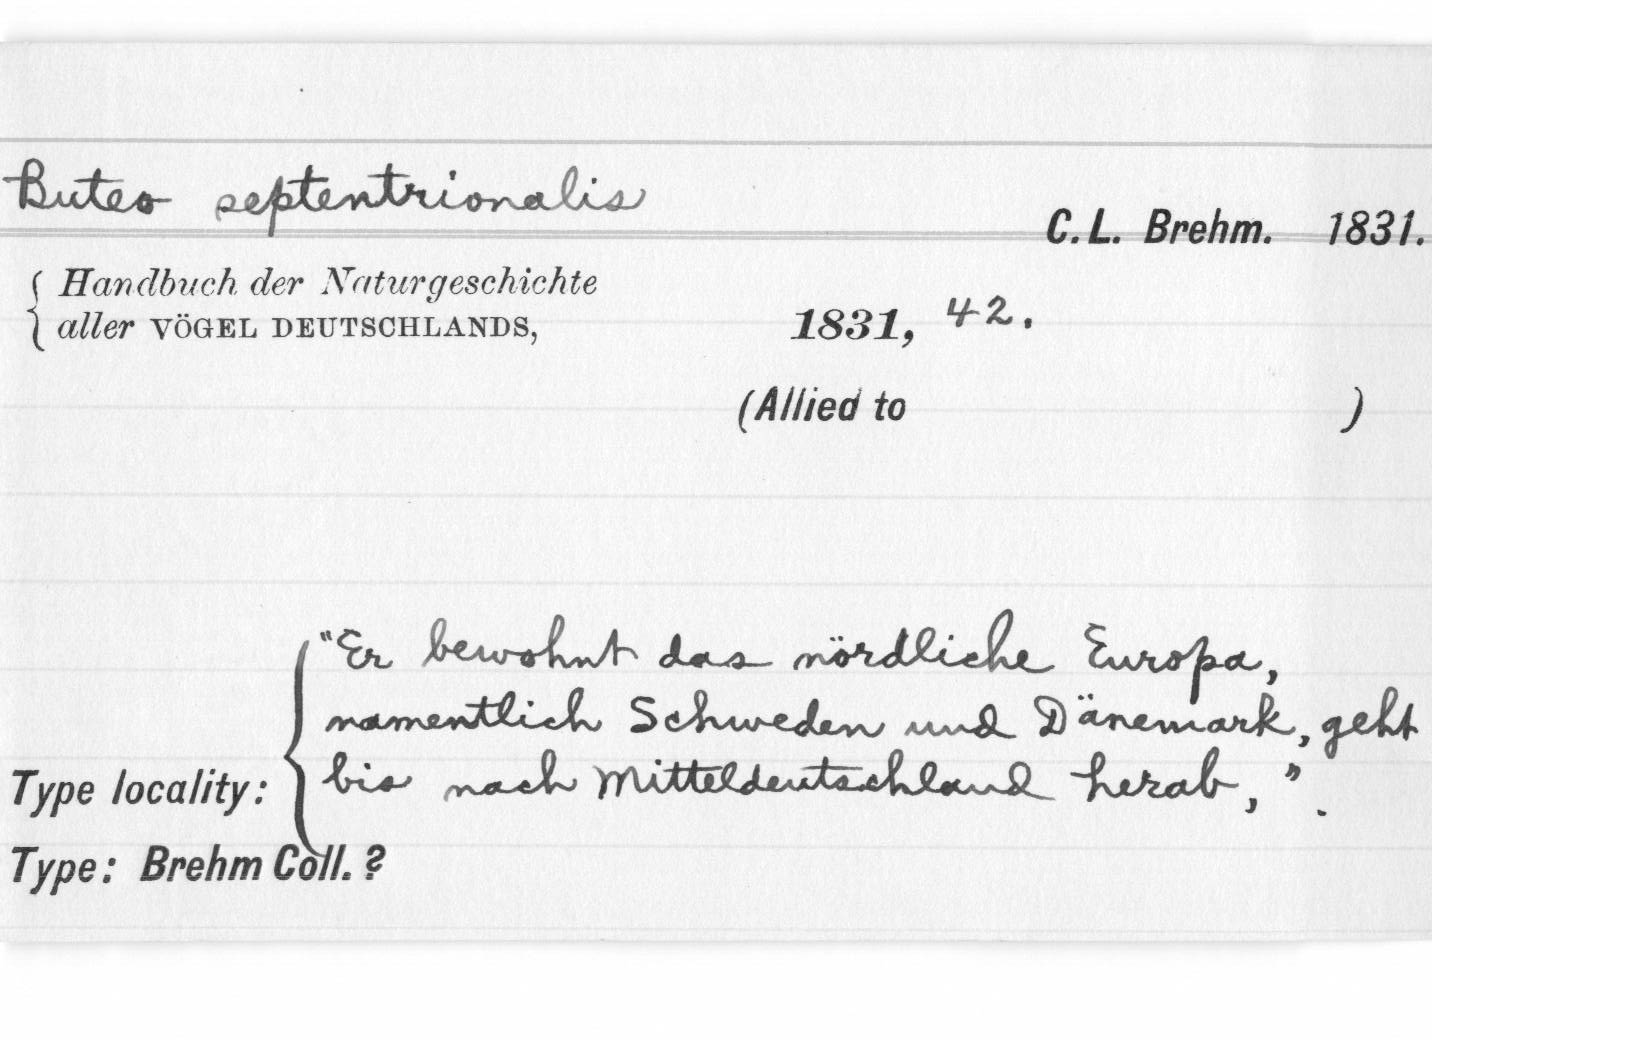 Buteo septentrionalis
C. L. Brehm. 1831.
Handbuch der Naturgeschichte
aller VÖGEL DEUTSCHLANDS, 1831, 42.
(Allied to )
"Er bewohnt das nördliche Europa,
namentlich Schweden und Dänemark, geht
Type locality: bis nach Mitteldeutschland herab,".
Type: Brehm Coll. ?